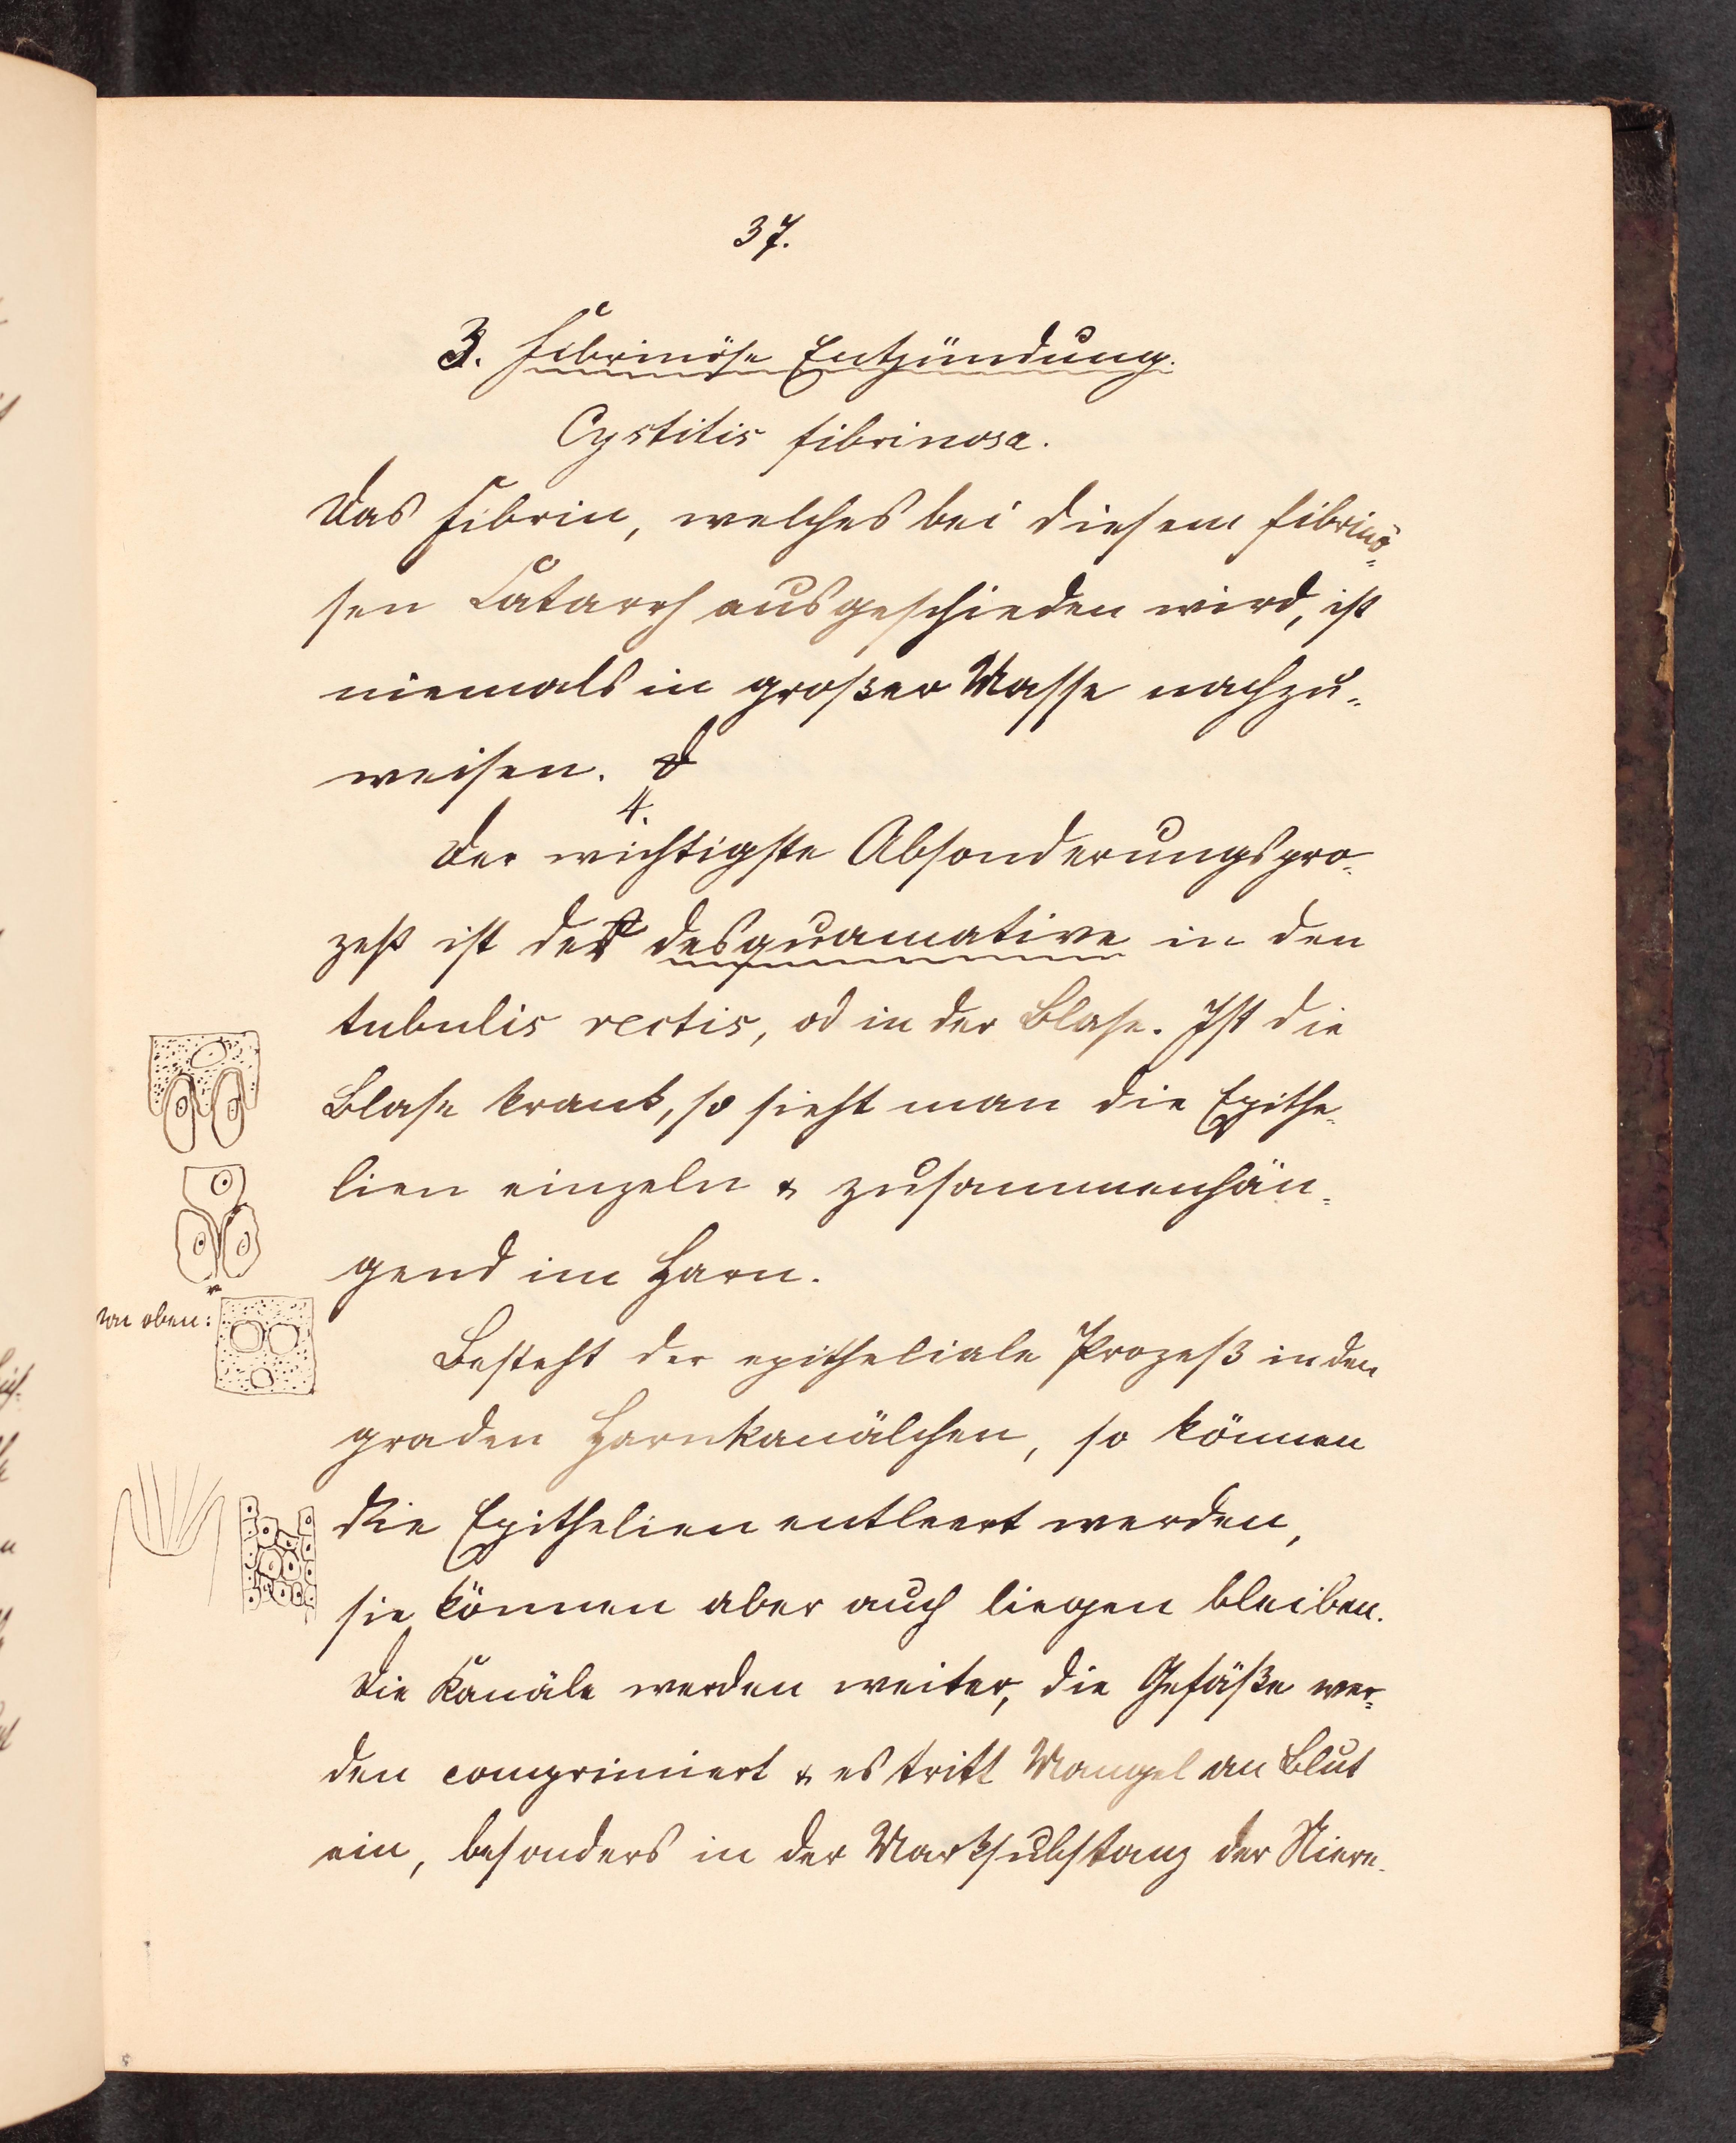 37.
3. Fibrinöse Entzündung.
Cystitis fibrinosa.
Das Fibrin, welches bei diesem fibrinö-
sen Catarrh ausgeschieden wird, ist
niemals in großer Masse nachzu-
weisen.
4.
Der wichtigste Absonderungspro-
zeß ist der desquamative in den
tubulis rectis, od in der Blase. Ist die
Blase krank, so sieht man die Epithe-
lien einzeln & zusammenhän-
gend im Harn.
von oben:
Besteht der epitheliale Prozeß in den
graden Harnkanälchen, so können
die Epithelien entleert werden,
sie können aber auch liegen bleiben.
Die Kanäle werden weiter, die Gefäße wer-
den comprimiert & es tritt Mangel an Blut
ein, besonders in der Marksubstanz der Niere.